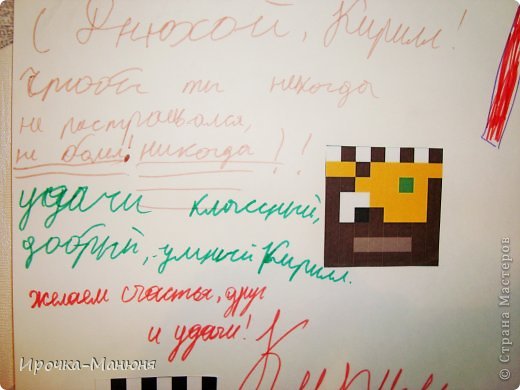 С Днюхой, Кирилл!
Чтобы ты некогда
не растраивался,
не болел! никогда)!
удачи классный,
добрый, умный Кирилл.
желаем счастья, друг
и удачи!
Ирочка-Манюня
© Страна Мастеров